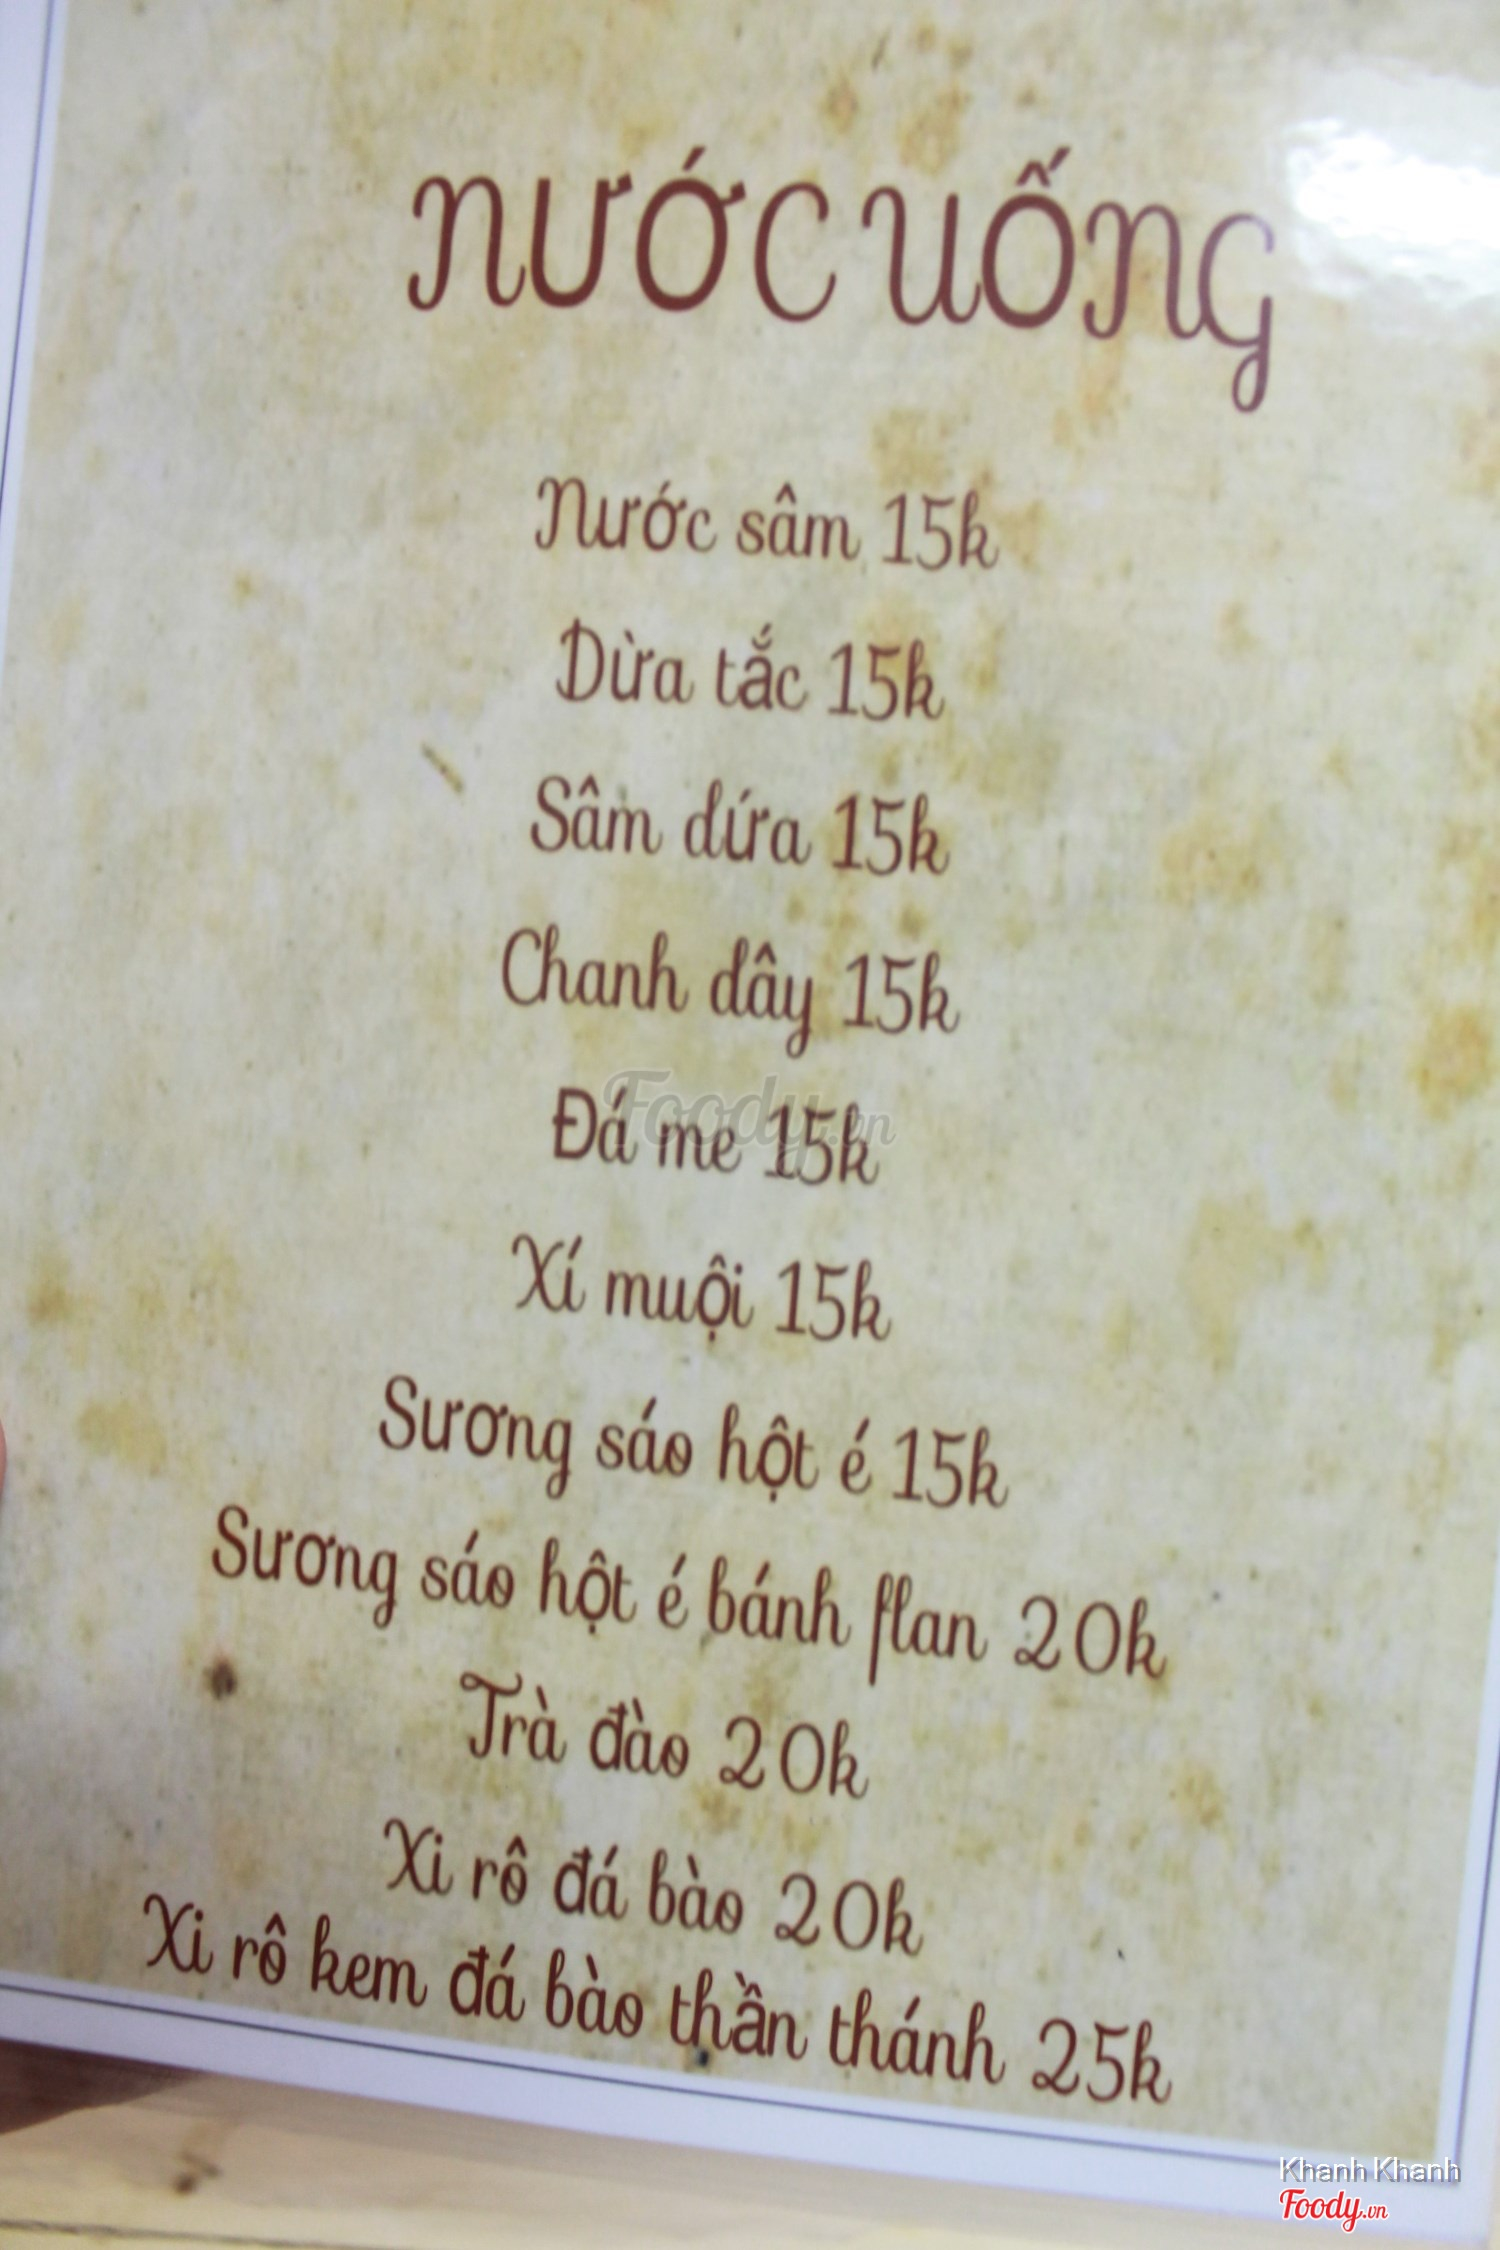 NƯỚC UỐNG
Nước sâm 15k
Dừa tắc 15k
Sâm dứa 15k
Chanh dây 15k
Đá me 15k
Foody.vn
Xí muội 15k
Sương sáo hột é 15k
Sương sáo hột é bánh flan 20k
Trà đào 20k
Xi rô đá bào 20k
Xi rô kem đá bào thần thánh 25k
Khanh Khanh
Foody.vn